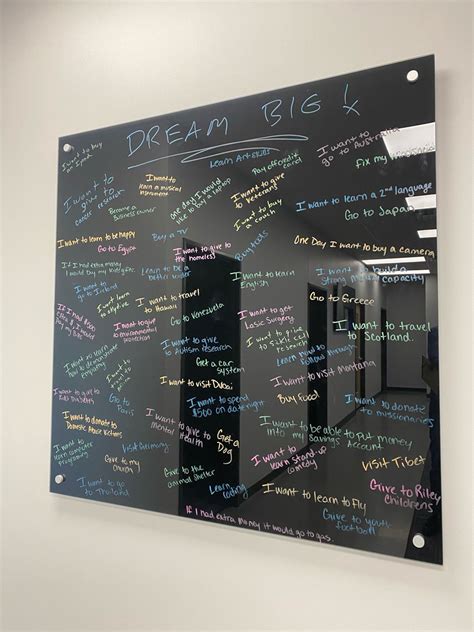 DREAM BIG!
I want to buy
an Ipad.
Learn Art skills
I want to
go to Australia
I want to
give to
cancer research
I want to
learn a musical
instrument
Become a
Business owner
one day I would
like to buy a laptop
I want to give
to veterans!
Fix my
I want to buy
a couch
I want to learn a 2nd language
Go to Japan
I want to learn to be happy
Go to Egypt
Buy a
I want to give to
the homeless!
Buy tools
One Day I want to buy a camera
If I had extra money
I would buy my kids gifts.
Learn to be a
better
I want to
go to Ireland
I want to learn
English
I want to build a
strong capacity
I want to travel
to Hawaii
Go to Venezuela
I want to get
Lasic Surgery
Go to Greece
If I had $500
extra I would
I want to give to
environmental
I want to give
to Autism research
I want to give
to sickle cell
research
I want to travel
to Scotland.
Get a car
system
I want to visit Dubai
I want to visit Montana
I want to give to
Kids Diabetes
Go to
Paris
I want to spend
$500 on date night
Buy Food
I want to donate to
missionaries
I want to donate to
Domestic Abuse Victims
I want to give to
Mental Health
Get a
Dog
I want to be able to put money
into my Savings Account
I want to
learn computer
programming
Visit Germany
Give to my
church
Give to the
animal shelter
I want to
learn stand up
comedy
Visit Tibet
I want to go
to Thailand
Learn
coding
I want to learn to Fly
Give to Riley
Childrens
Give to youth
football
If I had extra money it would go to gas.